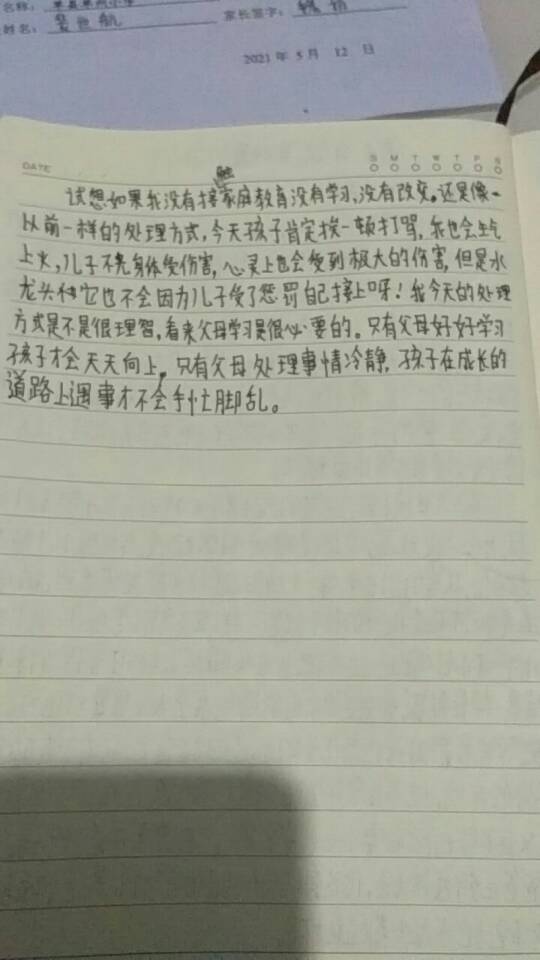 名称:
姓名: 家长签字:
2021年5月12日
DATE
S M T W T F S
触
试想如果我没有接家庭教育没有学习,没有改变。还是像
以前一样的处理方式,今天孩子肯定挨一顿打骂,我也会生气
上火,儿子不光身体受伤害,心灵上也会受到极大的伤害,但是水
龙头它也不会因为儿子受了惩罚自己接上呀!我今天的处理
方式是不是很理智,看来父母学习是很必要的。只有父母好好学习
孩子才会天天向上。只有父母处理事情冷静,孩子在成长的
道路上遇事才不会手忙脚乱。